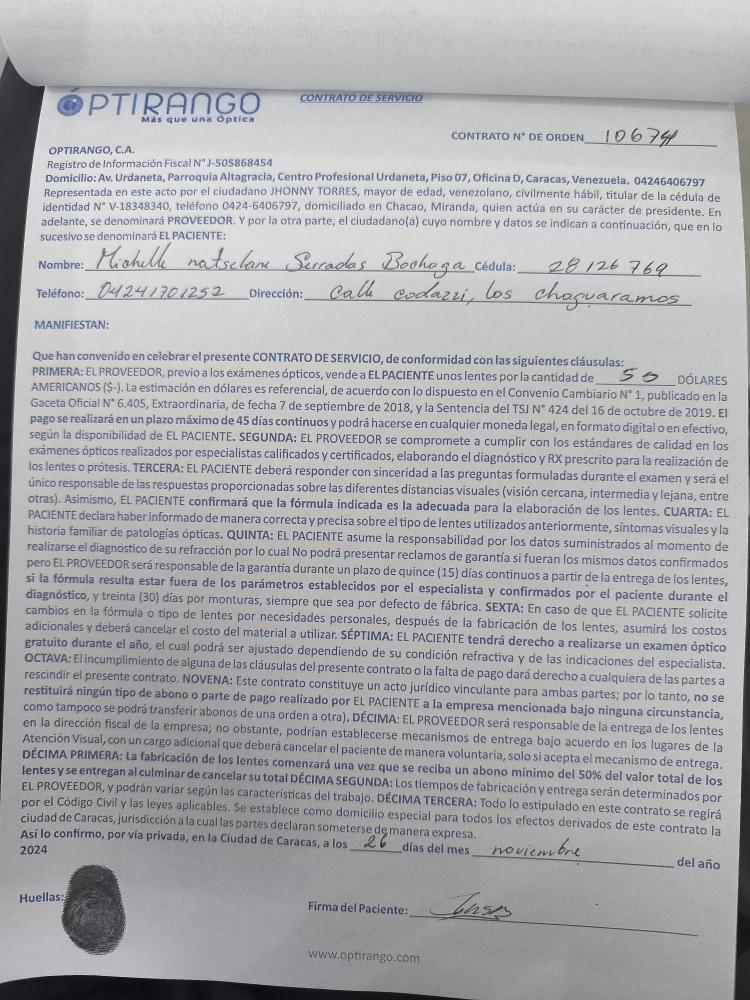 ÓPTIRANGO
Más que una Óptica
CONTRATO DE SERVICIO
CONTRATO N° DE ORDEN 10674
OPTIRANGO, C.A.
Registro de Información Fiscal N° J-505868454
Domicilio: Av. Urdaneta, Parroquia Altagracia, Centro Profesional Urdaneta, Piso 07, Oficina D, Caracas, Venezuela. 04246406797
Representada en este acto por el ciudadano JHONNY TORRES, mayor de edad, venezolano, civilmente hábil, titular de la cédula de
identidad N° V-18348340, teléfono 0424-6406797, domiciliado en Chacao, Miranda, quien actúa en su carácter de presidente. En
adelante, se denominará PROVEEDOR. Y por la otra parte, el ciudadano(a) cuyo nombre y datos se indican a continuación, que en lo
sucesivo se denominará EL PACIENTE:
Nombre: Michelle natselane Serradas Bochoga Cédula: 28126769
Teléfono: 04241701252 Dirección: Calle codazzi, los chaguaramos
MANIFIESTAN:
Que han convenido en celebrar el presente CONTRATO DE SERVICIO, de conformidad con las siguientes cláusulas:
PRIMERA: EL PROVEEDOR, previo a los exámenes ópticos, vende a EL PACIENTE unos lentes por la cantidad de 50 DÓLARES
AMERICANOS ($-). La estimación en dólares es referencial, de acuerdo con lo dispuesto en el Convenio Cambiario N° 1, publicado en la
Gaceta Oficial N° 6.405, Extraordinaria, de fecha 7 de septiembre de 2018, y la Sentencia del TSJ N° 424 del 16 de octubre de 2019. El
pago se realizará en un plazo máximo de 45 días continuos y podrá hacerse en cualquier moneda legal, en formato digital o en efectivo,
según la disponibilidad de EL PACIENTE. SEGUNDA: EL PROVEEDOR se compromete a cumplir con los estándares de calidad en los
exámenes ópticos realizados por especialistas calificados y certificados, elaborando el diagnóstico y RX prescrito para la realización de
los lentes o prótesis. TERCERA: EL PACIENTE deberá responder con sinceridad a las preguntas formuladas durante el examen y será el
único responsable de las respuestas proporcionadas sobre las diferentes distancias visuales (visión cercana, intermedia y lejana, entre
otras). Asimismo, EL PACIENTE confirmará que la fórmula indicada es la adecuada para la elaboración de los lentes. CUARTA: EL
PACIENTE declara haber informado de manera correcta y precisa sobre el tipo de lentes utilizados anteriormente, síntomas visuales y la
historia familiar de patologías ópticas. QUINTA: EL PACIENTE asume la responsabilidad por los datos suministrados al momento de
realizarse el diagnostico de su refracción por lo cual No podrá presentar reclamos de garantía si fueran los mismos datos confirmados
pero EL PROVEEDOR será responsable de la garantía durante un plazo de quince (15) días continuos a partir de la entrega de los lentes,
si la fórmula resulta estar fuera de los parámetros establecidos por el especialista y confirmados por el paciente durante el
diagnóstico, y treinta (30) días por monturas, siempre que sea por defecto de fábrica. SEXTA: En caso de que EL PACIENTE solicite
cambios en la fórmula o tipo de lentes por necesidades personales, después de la fabricación de los lentes, asumirá los costos
adicionales y deberá cancelar el costo del material a utilizar. SÉPTIMA: EL PACIENTE tendrá derecho a realizarse un examen óptico
gratuito durante el año, el cual podrá ser ajustado dependiendo de su condición refractiva y de las indicaciones del especialista.
OCTAVA: El incumplimiento de alguna de las cláusulas del presente contrato o la falta de pago dará derecho a cualquiera de las partes a
rescindir el presente contrato. NOVENA: Este contrato constituye un acto jurídico vinculante para ambas partes; por lo tanto, no se
restituirá ningún tipo de abono o parte de pago realizado por EL PACIENTE a la empresa mencionada bajo ninguna circunstancia,
como tampoco se podrá transferir abonos de una orden a otra). DÉCIMA: EL PROVEEDOR será responsable de la entrega de los lentes
en la dirección fiscal de la empresa; no obstante, podrían establecerse mecanismos de entrega bajo acuerdo en los lugares de la
Atención Visual, con un cargo adicional que deberá cancelar el paciente de manera voluntaria, solo si acepta el mecanismo de entrega.
DÉCIMA PRIMERA: La fabricación de los lentes comenzará una vez que se reciba un abono mínimo del 50% del valor total de los
lentes y se entregan al culminar de cancelar su total DÉCIMA SEGUNDA: Los tiempos de fabricación y entrega serán determinados por
EL PROVEEDOR, y podrán variar según las características del trabajo. DÉCIMA TERCERA: Todo lo estipulado en este contrato se regirá
por el Código Civil y las leyes aplicables. Se establece como domicilio especial para todos los efectos derivados de este contrato la
ciudad de Caracas, jurisdicción a la cual las partes declaran someterse de manera expresa.
Así lo confirmo, por vía privada, en la Ciudad de Caracas, a los 26 días del mes noviembre del año
2024
Huellas:
Firma del Paciente:
www.optirango.com